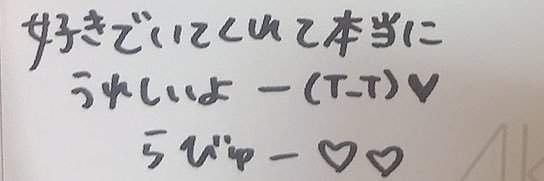 好きでいてくれて本当に
うれしいよー(T-T)♥
らびゅー♡♡